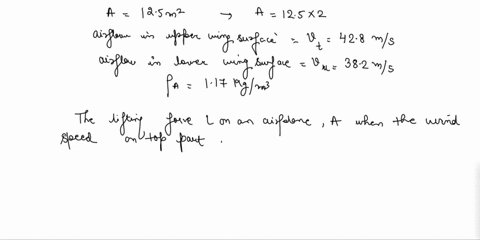 A = 12.5m² → A = 12.5 × 2
airflow in upper wing surface = υₜ = 42.8 m/s
airflow in lower wing surface = υᵤ = 38.2 m/s
ρ_A = 1.17 Kg/m³
The lifting force L on an airplane, A when the wind
speed on top part.